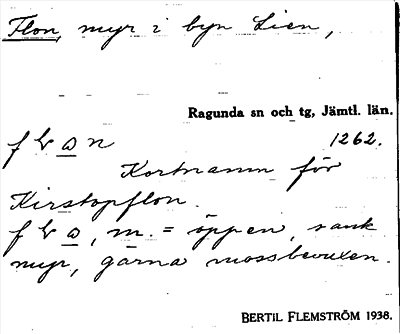 Flon, myr i byn Lien,
Ragunda sn och tg, Jämtl. län.
1262.
Kortnamn för
Kirstopflon.
m. = öppen, sank
myr, gärna mossbevuxen.
BERTIL FLEMSTRÖM 1938.